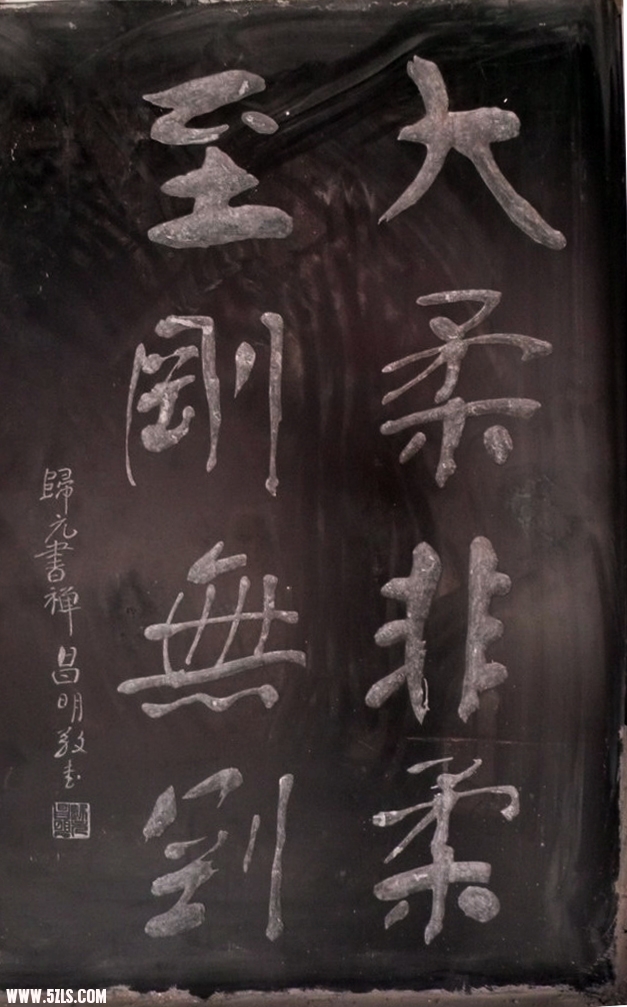 大柔非柔
至剛無剛
歸元書禪 昌明敬書
WWW.5ZLS.COM